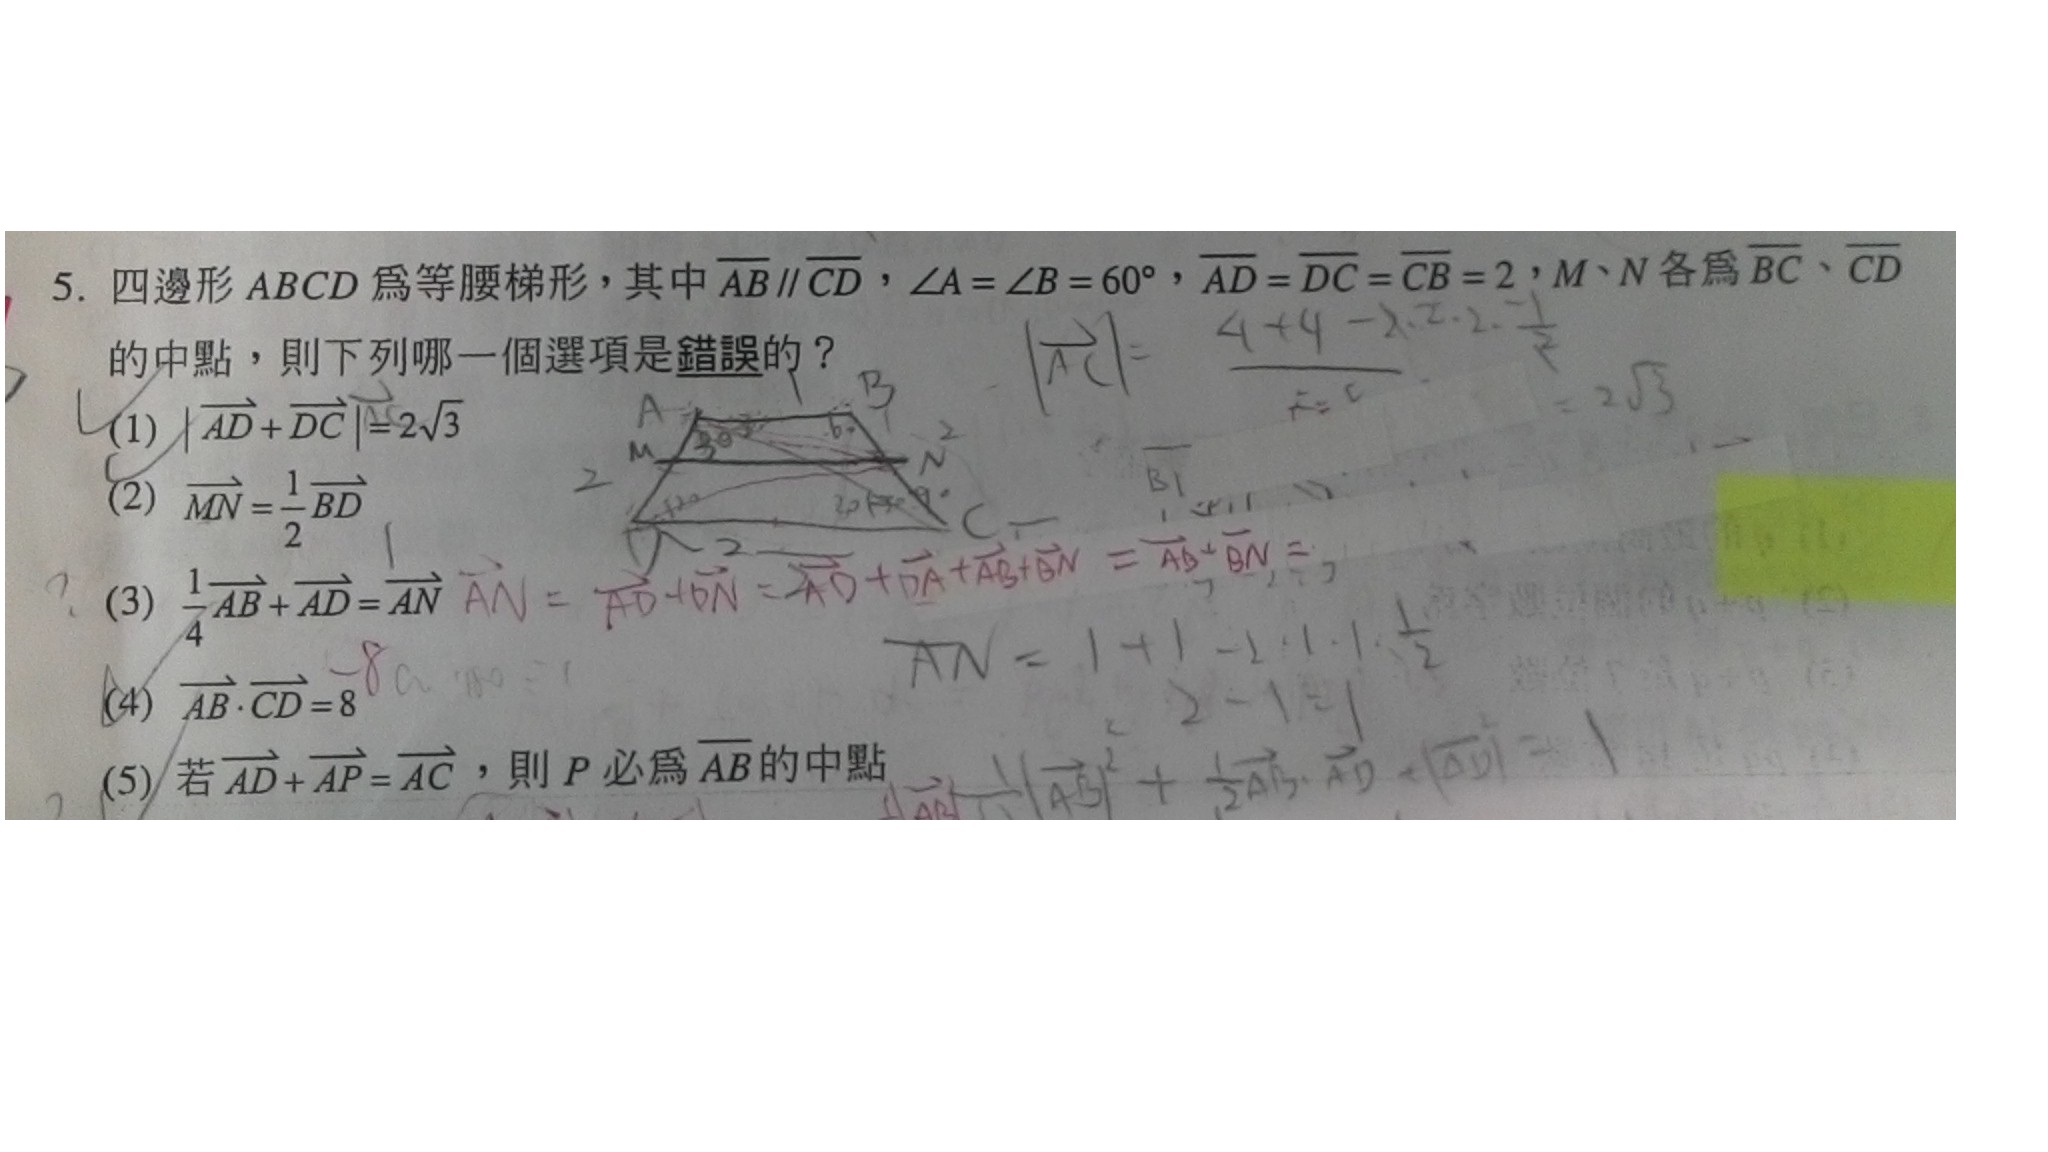 5. 四邊形 ABCD 爲等腰梯形，其中 \overline{AB} // \overline{CD}，∠A = ∠B = 60°，\overline{AD} = \overline{DC} = \overline{CB} = 2，M、N 各爲 \overline{BC}、\overline{CD}
的中點，則下列哪一個選項是錯誤的？
|\overrightarrow{AC}| = 4+4-2·2·2·-1/2
= 2√3
(1) |\overrightarrow{AD} + \overrightarrow{DC}| = 2√3
A B
M N 2
2
C
2
(2) \overrightarrow{MN} = 1/2 \overrightarrow{BD}
(3) 1/4 \overrightarrow{AB} + \overrightarrow{AD} = \overrightarrow{AN}
\overrightarrow{AN} = \overrightarrow{AD} + \overrightarrow{DN} = \overrightarrow{AD} + \overrightarrow{DA} + \overrightarrow{AB} + \overrightarrow{BN} = \overrightarrow{AB} + \overrightarrow{BN} =
\overline{AN} = 1+1-2·1·1·1/2
2-1=1
(4) \overrightarrow{AB} · \overrightarrow{CD} = 8
-8
(5) 若 \overrightarrow{AD} + \overrightarrow{AP} = \overrightarrow{AC}，則 P 必爲 \overline{AB} 的中點
|\overrightarrow{AB}|² + 1/2 \overrightarrow{AB} · \overrightarrow{AD} + |\overrightarrow{AD}|² = 1